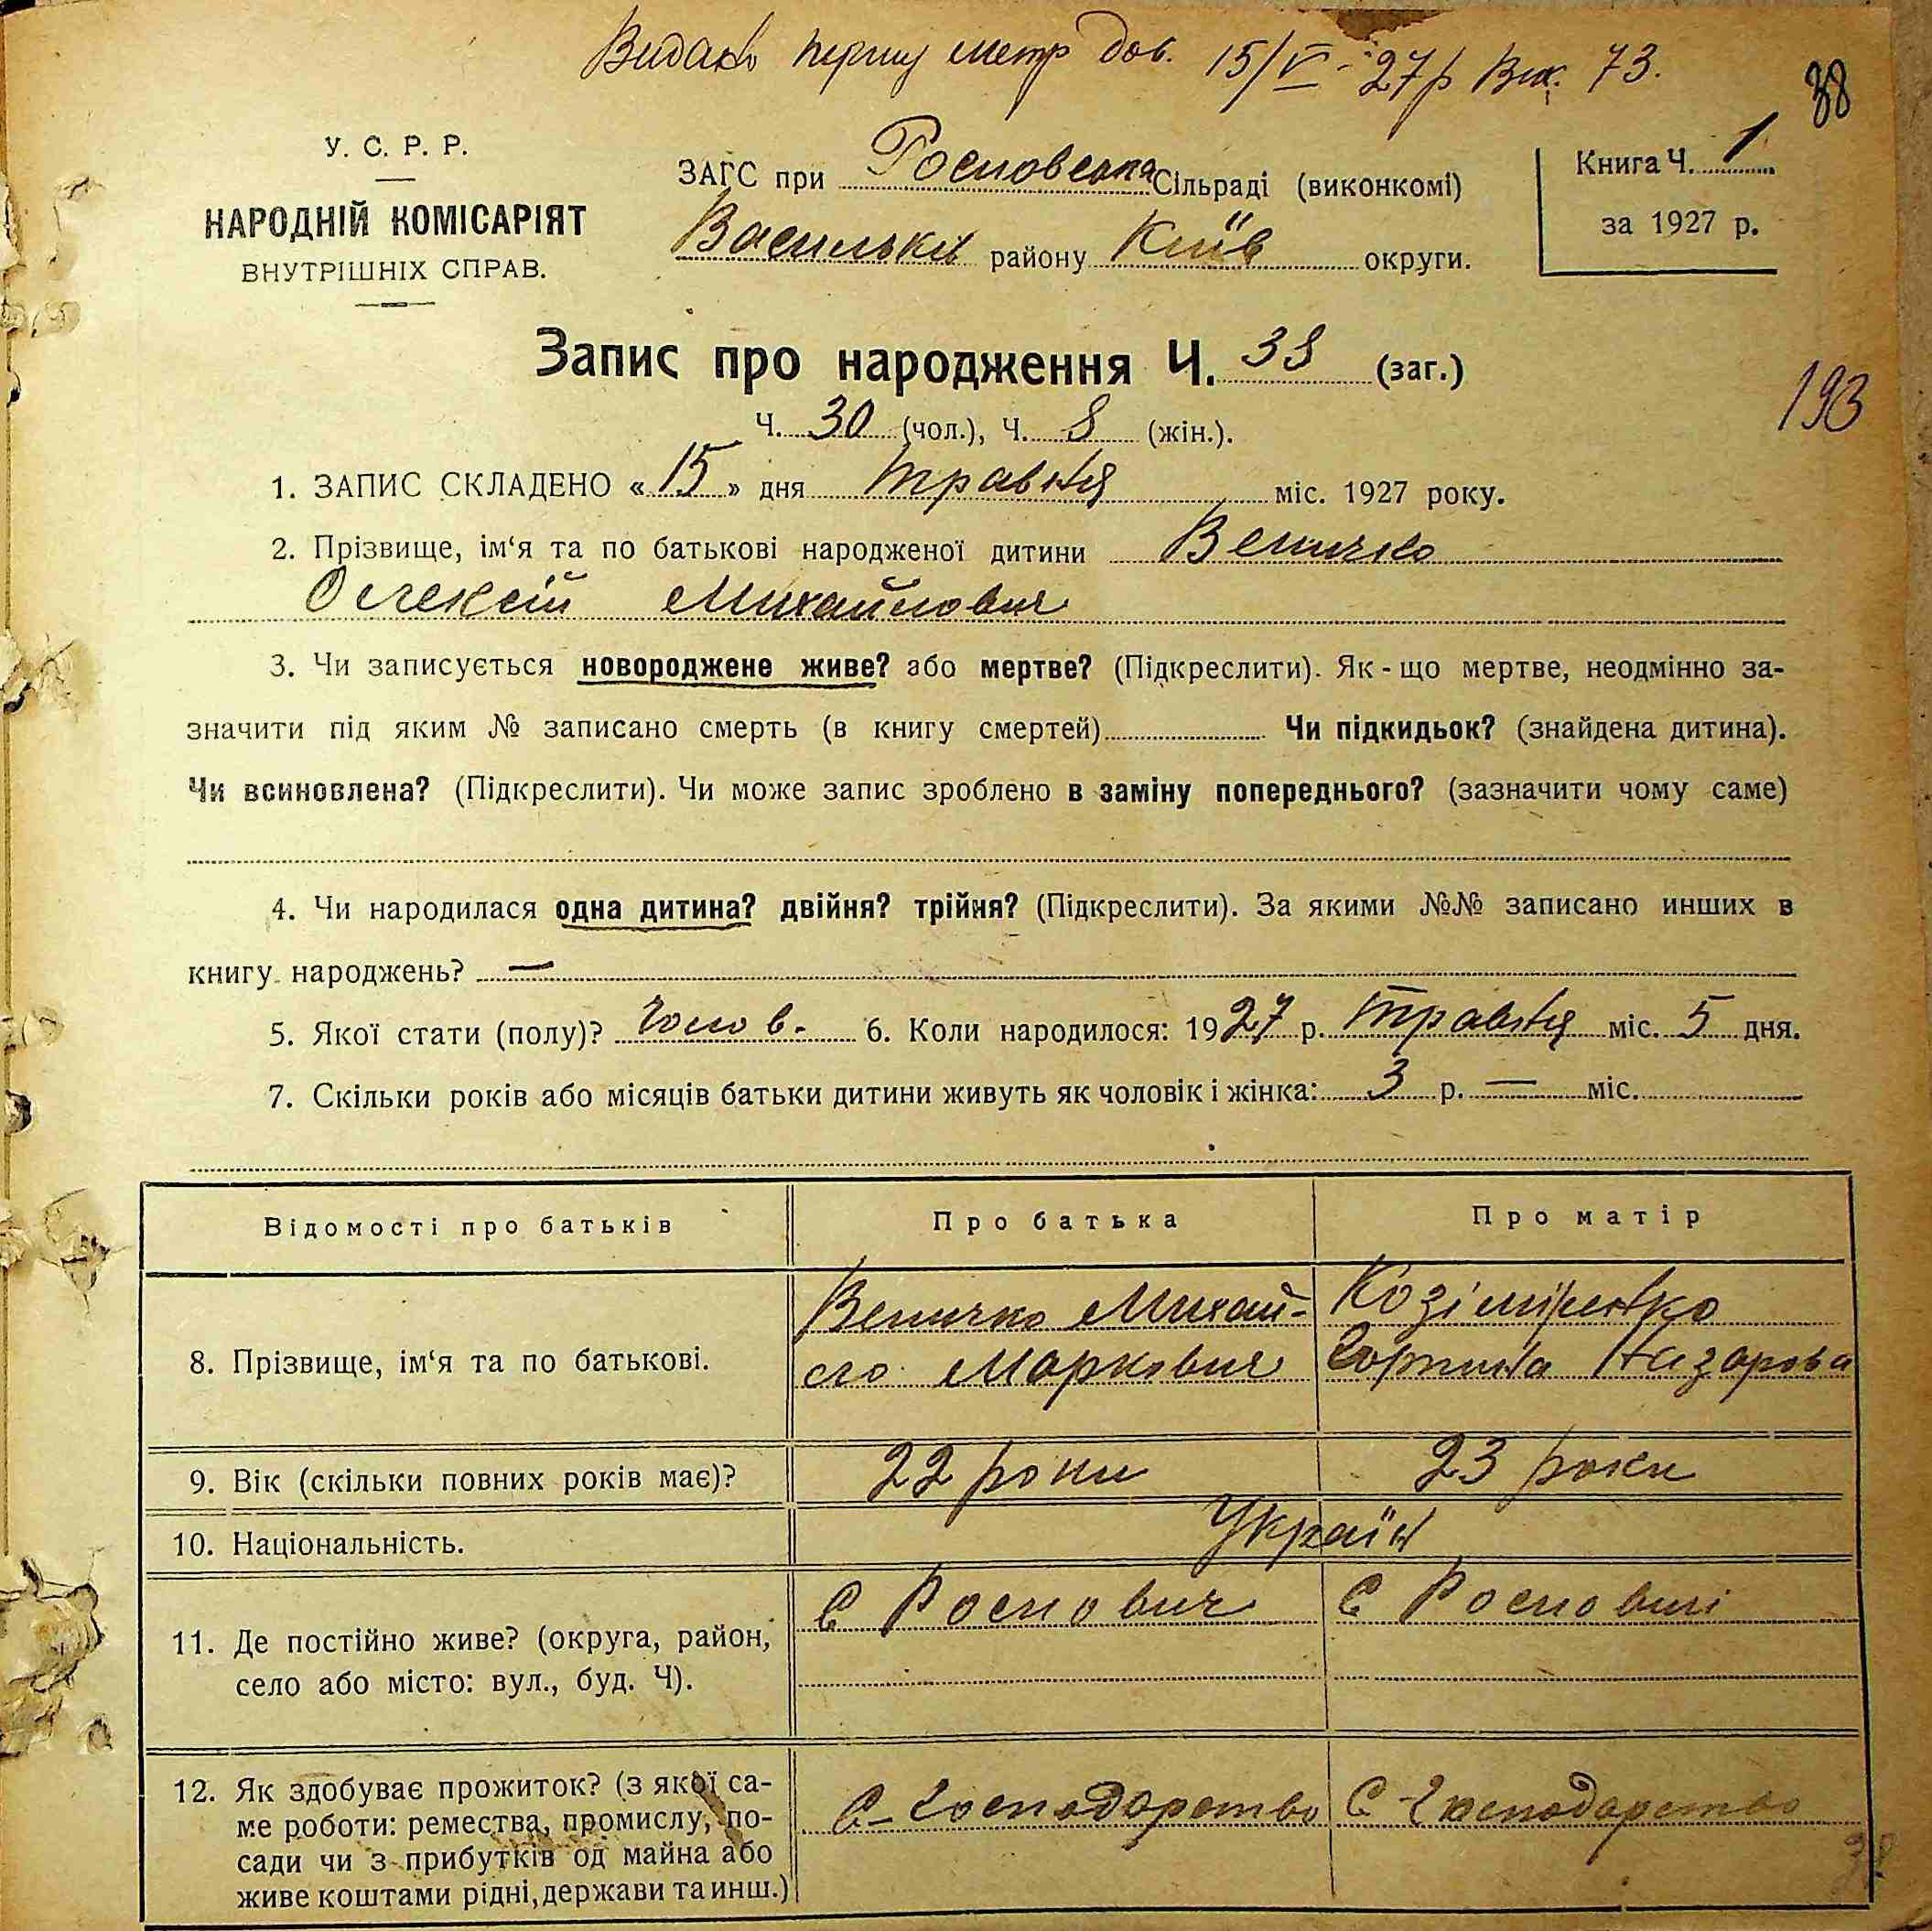 Видано першу метр дов. 15/V-27р Вик. 73.
38
У. С. Р. Р.
НАРОДНІЙ КОМІСАРІЯТ
ВНУТРІШНІХ СПРАВ.
ЗАГС при Рославська Сільраді (виконкомі)
Васильків району Київ округи.
Книга Ч. 1
за 1927 р.
Запис про народження Ч. 38 (заг.)
193
Ч. 30 (чол.), Ч. 8 (жін.).
1. ЗАПИС СКЛАДЕНО « 15 » дня травня міс. 1927 року.
2. Прізвище, ім‘я та по батькові народженої дитини Величко
Олексій Михайлович
3. Чи записується новороджене живе? або мертве? (Підкреслити). Як-що мертве, неодмінно за-
значити під яким № записано смерть (в книгу смертей) Чи підкидьок? (знайдена дитина).
Чи всиновлена? (Підкреслити). Чи може запис зроблено в заміну попереднього? (зазначити чому саме)
4. Чи народилася одна дитина? двійня? трійня? (Підкреслити). За якими №№ записано инших в
книгу народжень? —
5. Якої стати (полу)? Чолов. 6. Коли народилося: 1927 р. травня міс. 5 дня.
7. Скільки років або місяців батьки дитини живуть як чоловік і жінка: 3 р. — міс.
Відомості про батьків Про батька Про матір
Величко Михай- Козіміренко
8. Прізвище, ім‘я та по батькові. ло Маркович Горпина Назарова
9. Вік (скільки повних років має)? 22 роки 23 роки
10. Національність. Україн
С С
11. Де постійно живе? (округа, район,
село або місто: вул., буд. Ч).
12. Як здобуває прожиток? (з якої са-
ме роботи: ремества, промислу, по- С-Господарство С-Господарство
сади чи з прибутків од майна або
живе коштами рідні, держави та инш.)